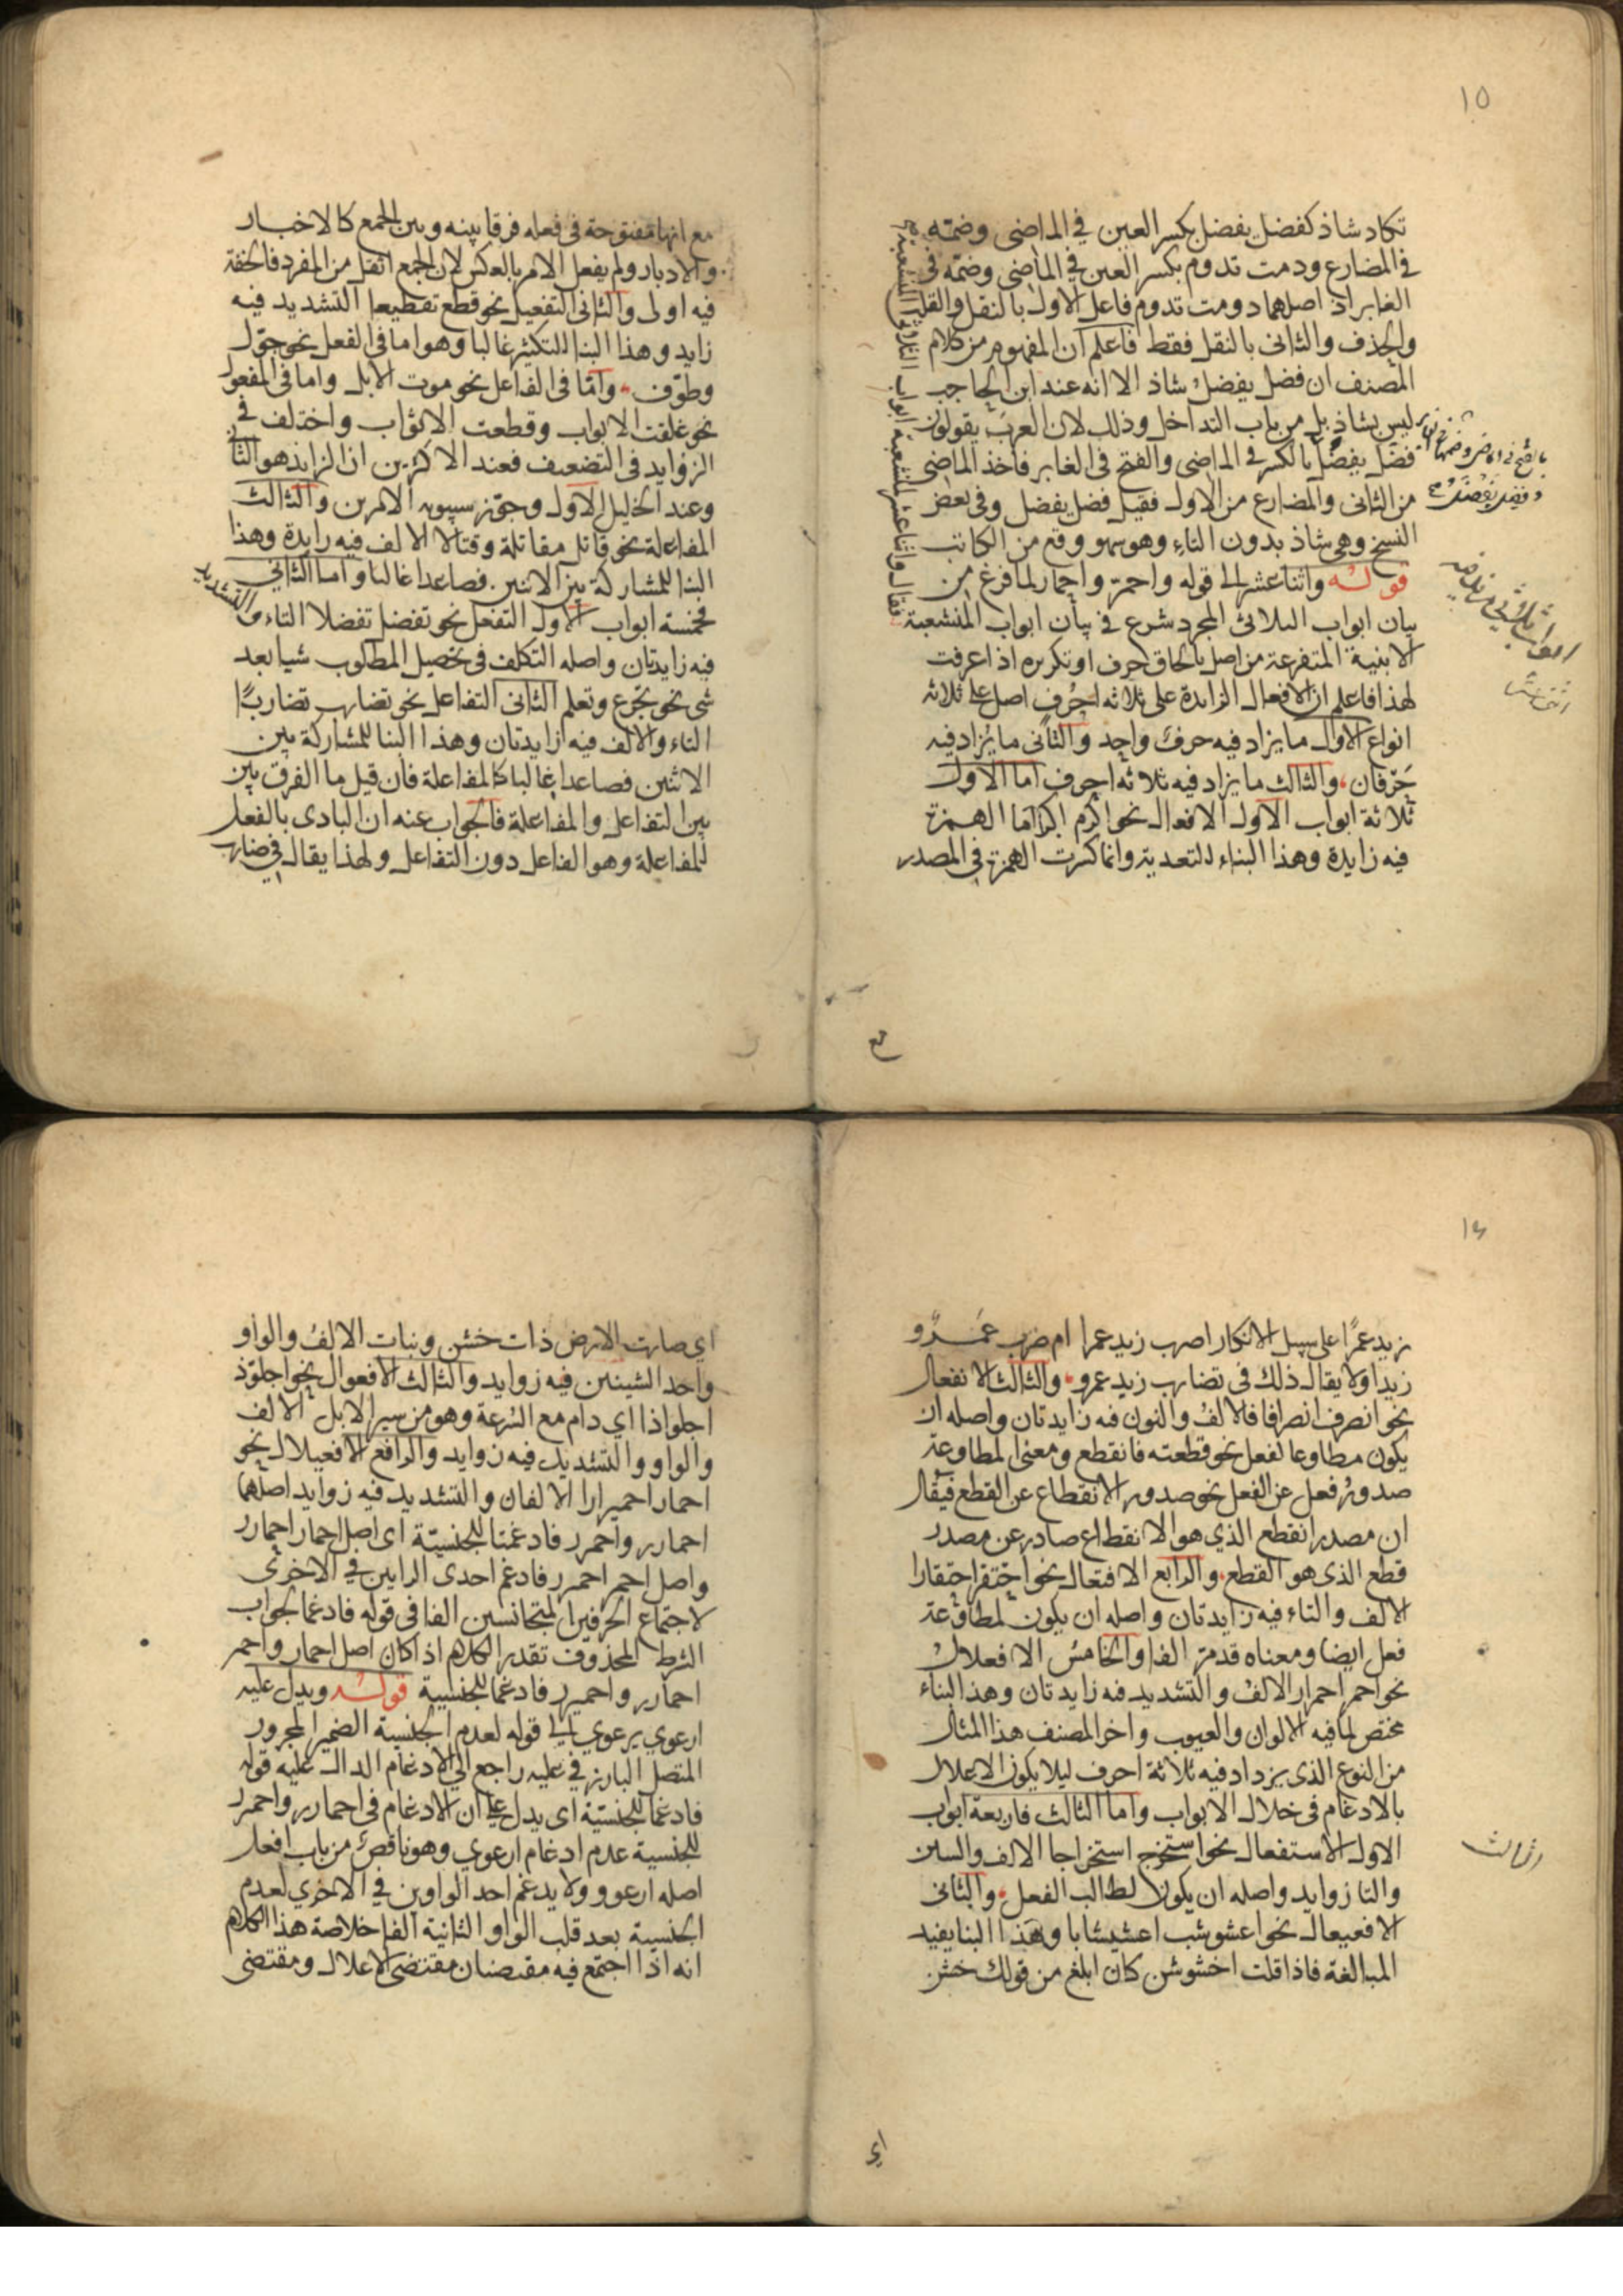 ١٥
تكاد شاذ كفضل يفضل بكسر العين في الماضى وضمته
في المضارع ودمت تدوم بكسر العين في الماضى وضمته فى
الغابر اذ اصلهما دومت تدوم فاعل الاول بالنقل والقلب
والحذف والثانى بالنقل فقط فاعلم ان المفهوم من كلام
المصنف ان فضل يفضل شاذ الا انه عند ابن الحاجب
ليس بشاذ بل من باب التداخل وذلك لان العرب يقولون
فضل يفضل بالكسر فى الماضى والفتح فى الغابر فاخذ الماضى
من الثانى والمضارع من الاول فقيل فضل يفضل وفى بعض
النسخ وهى شاذ بدون التاء وهو سهو وقع من الكاتب
قوله واثنا عشر الى قوله واحمرّ واحمار لما فرغ من
بيان ابواب الثلاثى المجرد شرع في بيان ابواب المنشعبة
الابنية المتفرعة من اصل بالحاق حرف او تكريره اذا عرفت
لهذا فاعلم ان الافعال الزايدة على ثلاثه احرف اصل على ثلاثه
انواع الاول ما يزاد فيه حرف واحد والثانى ما يزاد فيه
حرفان والثالث ما يزاد فيه ثلاثه احرف اما الاول
ثلاثة ابواب الاول الافعال نحو اكرم اكراما الهمزة
فيه زايدة وهذا البناء للتعدية وانما كسرت الهمزة فى المصدر
مع
مع انها مفتوحة فى فعله فرقا بينه وبين الجمع كالاخبار
والادبار ولم يفعل الامر بالعكس لان الجمع اثقل من المفرد فالخفة
فيه اولى والثانى التفعيل نحو قطع تقطيعا التشديد فيه
زايد وهذا البنا للتكثير غالبا وهو اما فى الفعل نحو جوّل
وطوّف واما فى الفاعل نحو موت الابل واما فى المفعول
نحو غلقت الابواب وقطعت الاثواب واختلف فى
الزوايد فى التضعيف فعند الاكثرين ان الزايد هو الثانى
وعند الخليل الاول وجوّز سيبويه الامرين والثالث
المفاعلة نحو قاتل مقاتلة وقتالا الالف فيه زايدة وهذا
البنا للمشاركة بين الاثنين فصاعدا غالبا واما الثانى
فخمسة ابواب الاول التفعل نحو تفضل تفضلا التاء والتشديد
فيه زايدتان واصله التكلف فى تحصيل المطلوب شيا بعد
شى نحو تجرع وتعلم الثانى التفاعل نحو تضارب تضاربًا
التاء والالف فيه زايدتان وهذا البنا للمشاركة بين
الاثنين فصاعدا غالبا كالمفاعلة فان قيل ما الفرق بين
بين التفاعل والمفاعلة فالجواب عنه ان البادى بالفعل
للمفاعلة وهو الفاعل دون التفاعل ولهذا يقال فى ضارب
١٦
زيد عمرًا على سبيل الانكار اضرب زيد عمرا ام ضرب عَمرو
زيدا ولا يقال ذلك فى تضارب زيد عمرو والثالث الانفعال
نحو انصرف انصرافا فالالف والنون فيه زايدتان واصله ان
يكون مطاوعا لفعل نحو قطعته فانقطع ومعنى المطاوعة
صدور فعل عن الفعل نحو صدور الانقطاع عن القطع فيقال
ان مصدر انقطع الذي هو الانقطاع صادر عن مصدر
قطع الذى هو القطع والرابع الافتعال نحو احتقر احتقارا
الالف والتاء فيه زايدتان واصله ان يكون لمطاوعة
فعل ايضا ومعناه قد مرّ الفا والخامس الافعلال
نحو احمر احمرار الالف والتشديد فيه زايدتان وهذا البناء
مختص لما فيه الالوان والعيوب واخر المصنف هذا المثال
من النوع الذى يزداد فيه ثلاثة احرف ليلا يكون الاعلال
بالادغام فى خلال الابواب واما الثالث فاربعة ابواب
الاول الاستفعال نحو استخرج استخراجا الالف والسين
والتا زوايد واصله ان يكون لطالب الفعل والثانى
الافعيعال نحو اعشوشب اعشيشابا وهذا البنا يفيد
المبالغة فاذا قلت اخشوشن كان ابلغ من قولك خشن
الثالث
اي
اي صارت الارض ذات خشن ونبات الالف والواو
واحد الشينين فيه زوايد والثالث الافعوال نحو اجلوّذ
اجلواذا اي دام مع السرعة وهو من سير الابل الالف
والواو والتشديد فيه زوايد والرابع الافعيلال نحو
احمار احميرارا الالفان والتشديد فيه زوايد اصلهما
احمارر واحمرر فادغمتا للجنسيّة اى اصل احمار احمارر
واصل احمر احمرر فادغم احدى الرايين في الاخرى
لاجتماع الحرفين المتجانسين الفا فى قوله فادغما لجواب
الشرط المحذوف تقدير الكلام اذا كان اصل احمار واحمر
احمارر واحمرر فادغما للجنسية قوله ويدل عليه
ارعوي يرعوي الى قوله لعدم الجنسية الضمير المجرور
المتصل البارز في عليه راجع الى الادغام الدال عليه قوله
فادغما للجنسيّة اى يدل على ان الادغام فى احمارر واحمرر
للجنسية عدم ادغام ارعوي وهو ناقص من باب افعل
اصله ارعوو ولا يدغم احد الواوين في الاخري لعدم
الجنسية بعد قلب الواو الثانية الفا خلاصة هذا الكلام
انه اذا اجتمع فيه مقتضيان مقتضى الاعلال ومقتضى